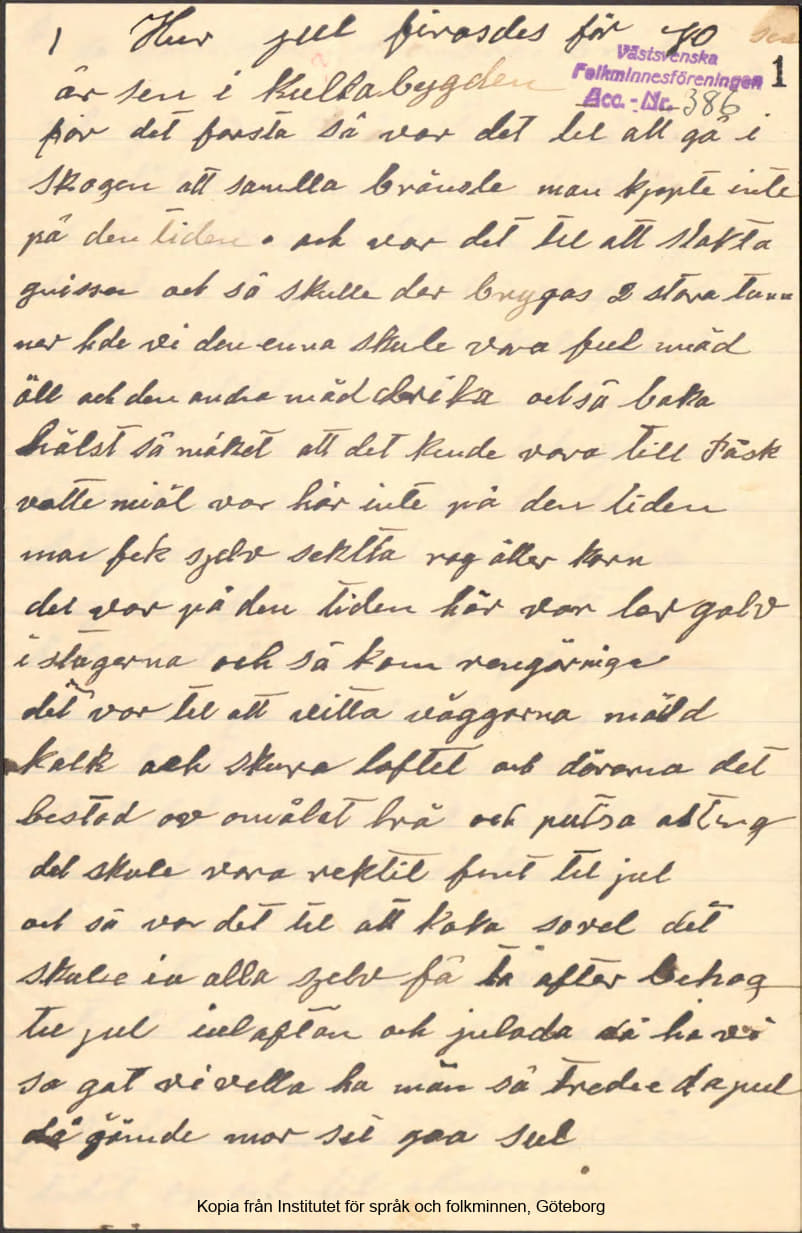 1 Hur jul firasdes för 70 sea
Västsvenska
Folkminnesföreningen
Acc. - Nr. 386
1
år sen i Kullabygden
för det forsta så var det til att gå i
skogen att samlla bränsle man kjopte inte
på den tiden. och var det til att slakta
grissen och så skulle der brygas 2 stora tunn
ner hde vi den enna skule vara ful mäd
öll och den andra mäd drika och så baka
hälst så måket att det kunde vara till Påsk
vatte miäl var här inte på den tiden
man fek sjelv sektta rag äller korn
det var på den tiden här var ler golv
i stugerna och så kom rengörninga
det var til att vitta väggarna mäd
kalk och skura loftet och dörarna det
bestod av omålat trä och putsa alting
det skule vara rektit fint til jul
och så var det til att koka sovel det
skulle in alla sjelv få ta after behag
til jul julaftan och julada då ha vi
so gat vi vella ha män så tredie dajul
då gömde mor sit goa sul
Kopia från Institutet för språk och folkminnen, Göteborg